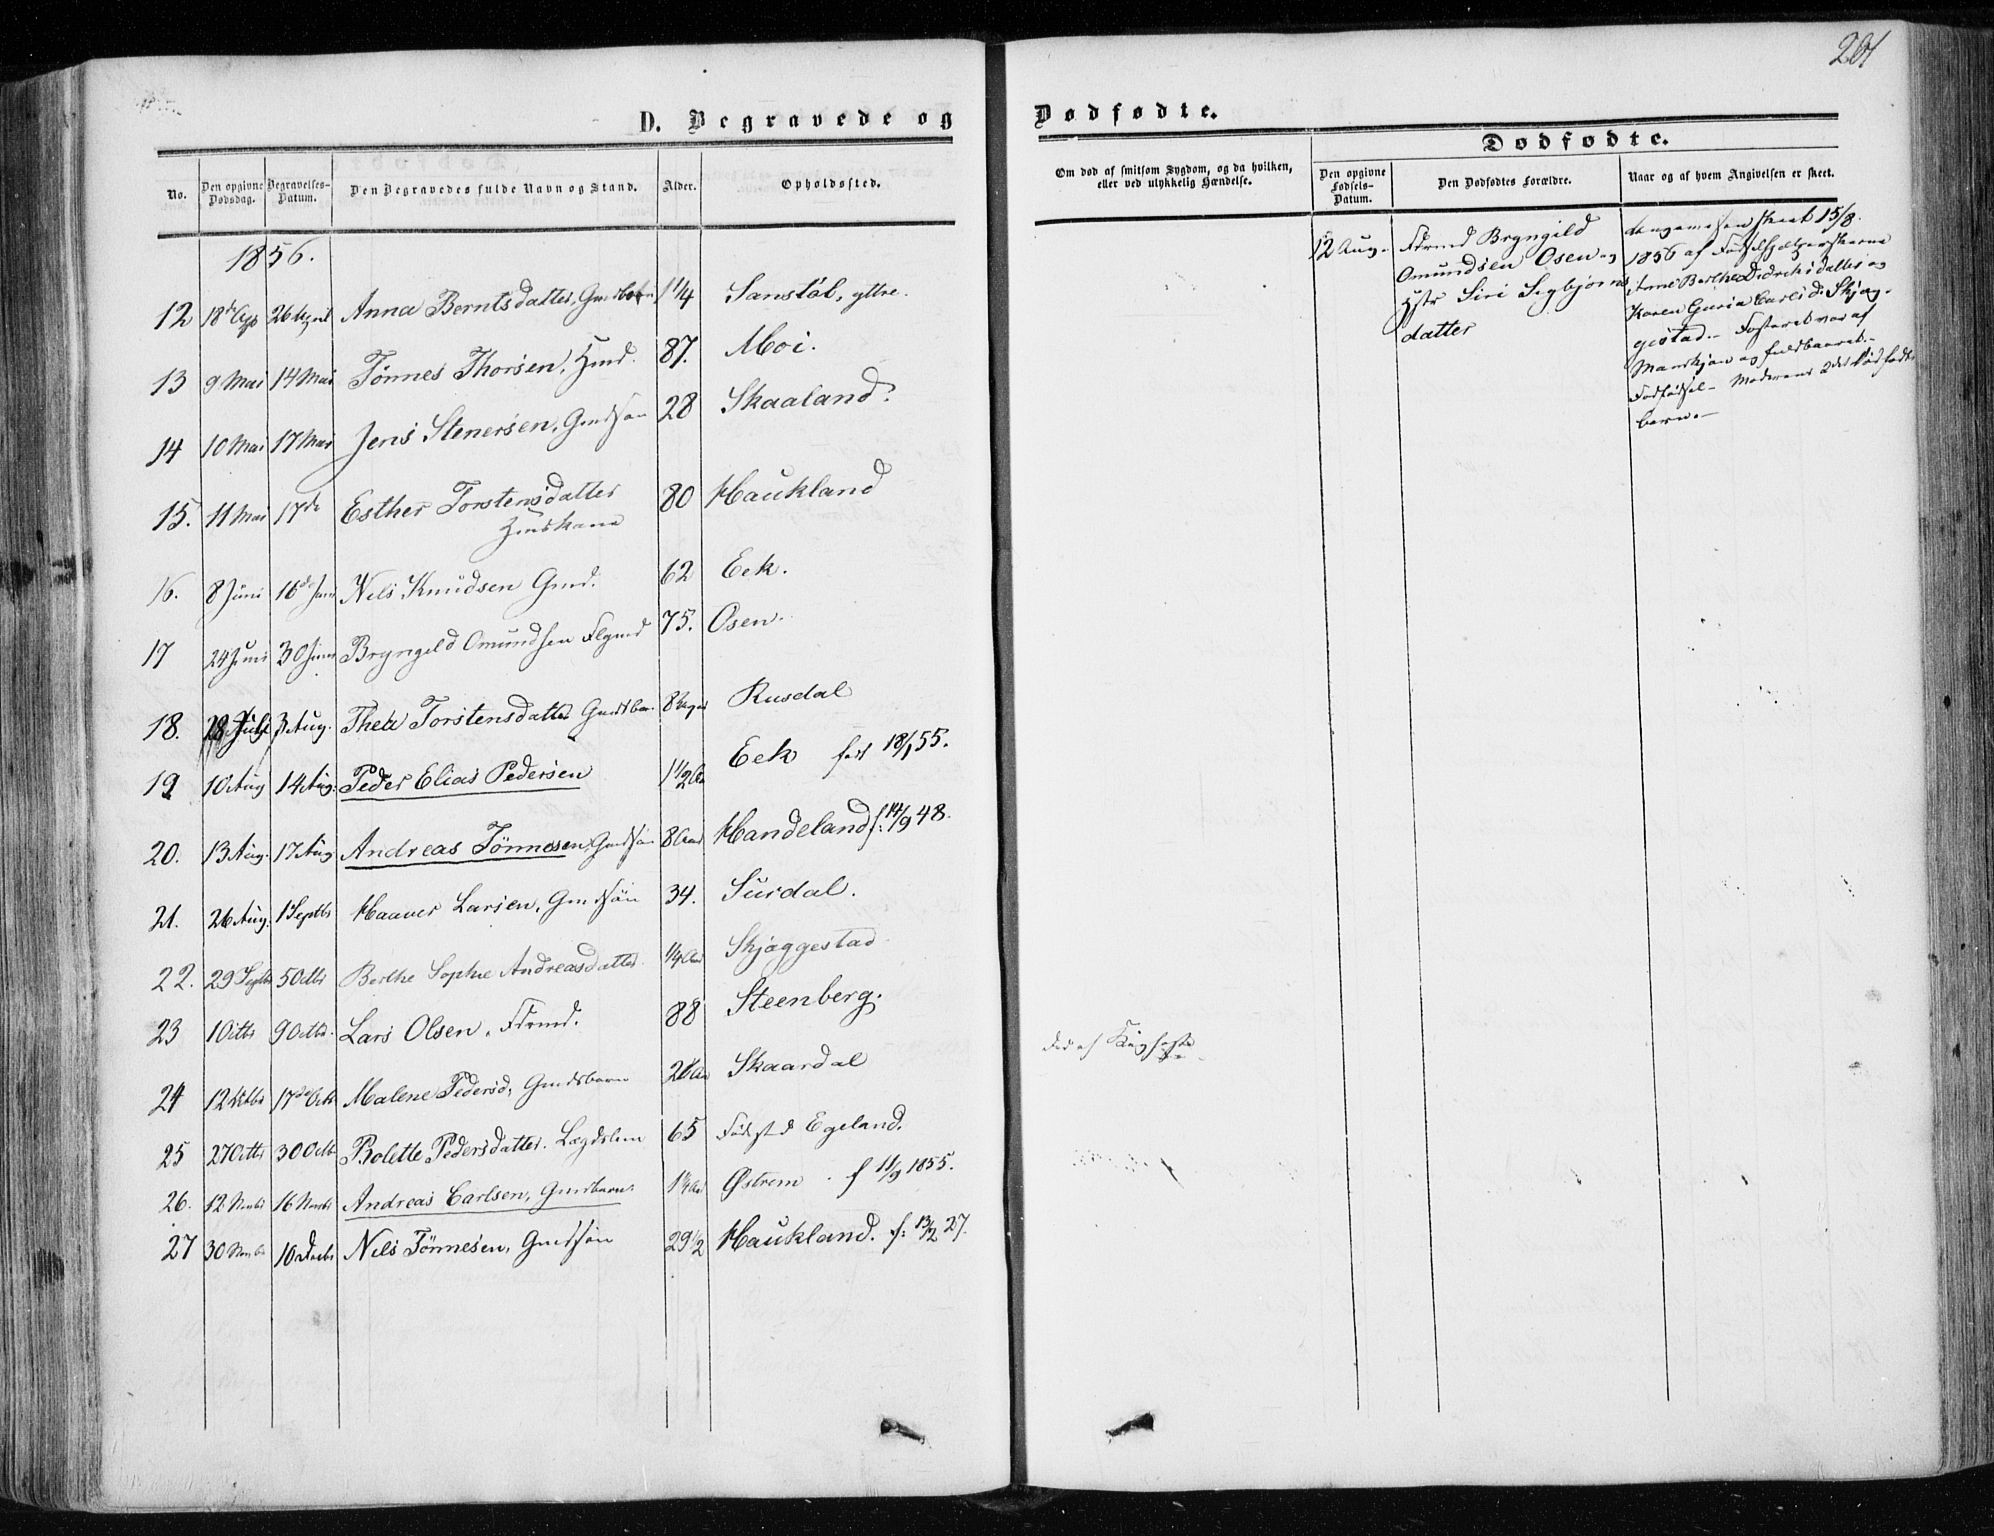 201
D. Begravede og Dødfødte.
Dødfødte.
No.
Den opgivne Dødsdag.
Begravelses-Datum.
Den Begravedes fulde Navn og Stand.
Alder.
Opholdssted.
Om død af smitsom Sygdom, og da hvilken, eller ved ulykkelig Hændelse.
Den opgivne Fødsels-Datum.
Den Dødfødtes Forældre.
Naar og af hvem Angivelsen er skeet.
1856.
12 18de 26 April Anna Berntsdatter, 1 1/4 Sanstøl, yttre.
13 9 Mai 14 Mai Tönnes Thorsen, Gmd. 87. Moi.
14 10 Mai 17 Mai Jens Stenersen, Gmdsøn 28 Skaaland
15. 11 Mai 17de Esther Torstensdatter 80 Haukland
Gmdskone
16. 8 Juni 16de Juni Nels Knudsen Gmd. 62 Eek.
17 24 Juni 30 Juni Bryngeld Omundsen 75. Osen.
18. 28 Juli 3 Aug. Thea Torstensdatter 8 Rusdal
19 10 Aug 14 Aug. Peder Elias Pedersen 1 1/2 Aar Eek født 18/1 55.
20. 13 Aug. 17 Aug Andreas Tönnesen, Gmdsøn 8 Aar Handeland f. 14/9 48.
21. 26 Aug. 1 Septbr Haaver Larsen, Gmdsøn 34. Surdal.
22. 29 Septbr 5 Octbr Berthe Sophie Andreasdatter 1/4 Aar Skjæggestad
23 1 Octbr 9 Octbr. Lars Olsen, Fdrmd. 88 Steenberg.
24 12 Octbr 17de Octbr Malene Pedersd, Gmdsbarn Skaardal
død af Kighoste
25 27 Octbr 30 Octbr Bolette Pedersdatter. Lægdslem 65 Fødested Egeland.
26. 12 Novbr 16 Novbr Andreas Carlsen, Gmdbarn. 1 1/4 Aar Østrem f 11/9 1855.
27 30 Novbr 10 Decbr Nels Tönnesen, Gmdsøn 29 1/2 Haukland. f: 13/2 27.
12 Aug.
Fdrmd Bryngild
Omundsen Osen og
Hstr Siri Sigbjørns
datter
skeet 15/8.
1856 af
Anne Berthe Didriksdatter og
Karen Guria Carlsd: Skjæg-
gestad. Fosteret var af
Mandkjøn og fuldbaaret.
Moderens 2det dødfødte
barn.